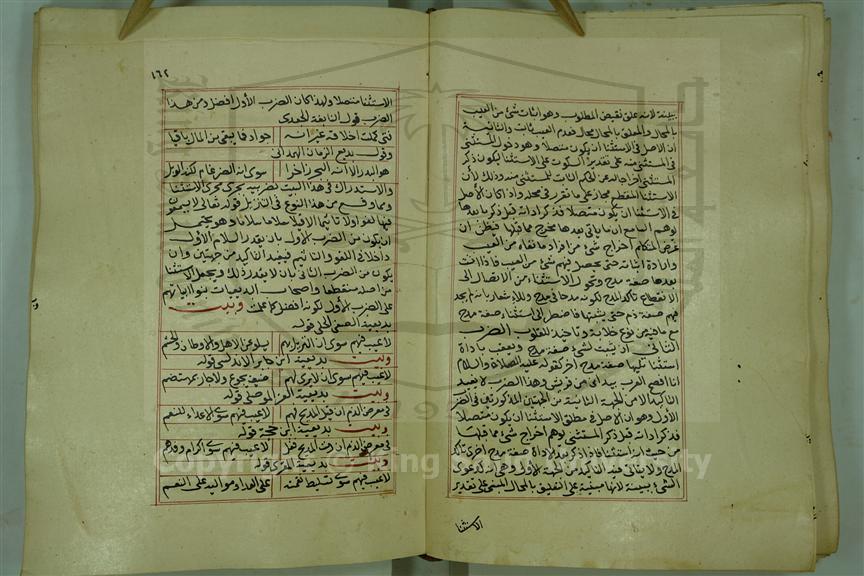 ببينة لانه علق نقيض المطلوب وهو اثبات شئ من العيب
بالمحال والمعلق بالمحال محال فعدم العيب ثابت والثانية
ان الاصل في الاستثنا ان يكون متصلا وهو دخول المستثنى
في المستثنى منه على تقدير السكوت على الاستثنا ليكون ذكر
المستثنى اخراجا له عن الحكم الثابت للمستثنى منه وذلك لأن
الاستثنا المنقطع مجاز على ما تقرر في محله واذا كان الأصل
في الاستثنا ان يكون متصلا فذكر اداته قبل ذكر ما بعدها
يوهم السامع ان ما ياتى بعدها مخرج مما قبلها فيظن ان
غرض المتكلم اخراج شئ من افراد ما نفاه من العيب
وارادة اثباته حتى يحصل فيهم شئ من العيب فاذا اتت
بعدها صفة مدح وتحول الاستثناء من الاتصال الى
الانقطاع تأكد المدح لكونه مدحا في مدح وللاشعار بانه لم يجد
فيهم صفة ذم حتى يثبتها فاضطر الى استثناء صفة مدح
مع ما فيه من نوع خلابة وتاخيذ للقلوب الضرب
الثانى ان يثبت لشئ صفة مدح ويعقب باداة
استثنا تليها صفة مدح اخرى كقوله عليه الصلاة والسلام
انا افصح العرب بيد انى من قريش وهذا الضرب لا يفيد
التاكيد الا من الجهة الثانية من الجهتين المذكورتين في الضرب
الأول وهو ان الاصل في مطلق الاستثنا ان يكون متصلا
فذكر اداته قبل ذكر المستثنى يوهم اخراج شئ مما قبلها
من حيث انه استثنا فاذا ذكر بعد الاداة صفة مدح اخرى تأكد
المدح ولا يتأتى فيه التاكيد من الجهة الاولى وهى انه كدعوى
الشئ ببينة لانها مبنية على التعليق بالمحال المبنى على تقدير
الاستثنا
١٦٢
الاستثنا متصلا ولهذا كان الضرب الأول افضل ومن هذا
الضرب قول نابغة الجعدى
فتى كملت اخلاقه غير انه جواد فما يبقى من المال باقيا
وقول بديع الزمان الهمدانى
هو البدر الا انه البحر زاخرا سوى انه الضرغام لكنه الوبل
والاستدراك في هذا البيت لضربيه يجرى مجرى الاستثنا
ومما وقع من هذا النوع في التنزيل قوله تعالى لا يسمعون
فيها لغوا ولا تاثيما الا قيلا سلاما سلاما وهو يحتمل
ان يكون من الضرب الأول بان يقدر السلام الأول
داخلا في اللغو والتاثيم فيفيد التاكيد من جهتين وان
يكون من الضرب الثانى بان لا يقدر ذلك ويجعل الاستثنا
من اصله منقطعا واصحاب البديعيات بنوا ابياتهم
على الضرب الأول لكونه افضل كما علمت وبيت
بديعية الصفى الحلى قوله
لا عيب فيهم سوى ان النزيل بهم يسلو عن الاهل والاوطان والحشم
وبيت بديعية ابن جابر الاندلسى قوله
لا عيب فيهم سوى ان لا يرى لهم ضيف يجوع ولا جار بمهتضم
وبيت بديعية العز الموصلى قوله
في معرض الذم ان قيل المديح لهم لا عيب فيهم سوى الاعداء للنعم
وبيت بديعية ابن حجة قوله
في معرض الذم ان رمت المديح فقل لا عيب فيهم سوى اكرام وفدهم
وبيت بديعية المقرى قوله
لا عيب فيهم سوى تسليط على العدا ومواليد على النعم